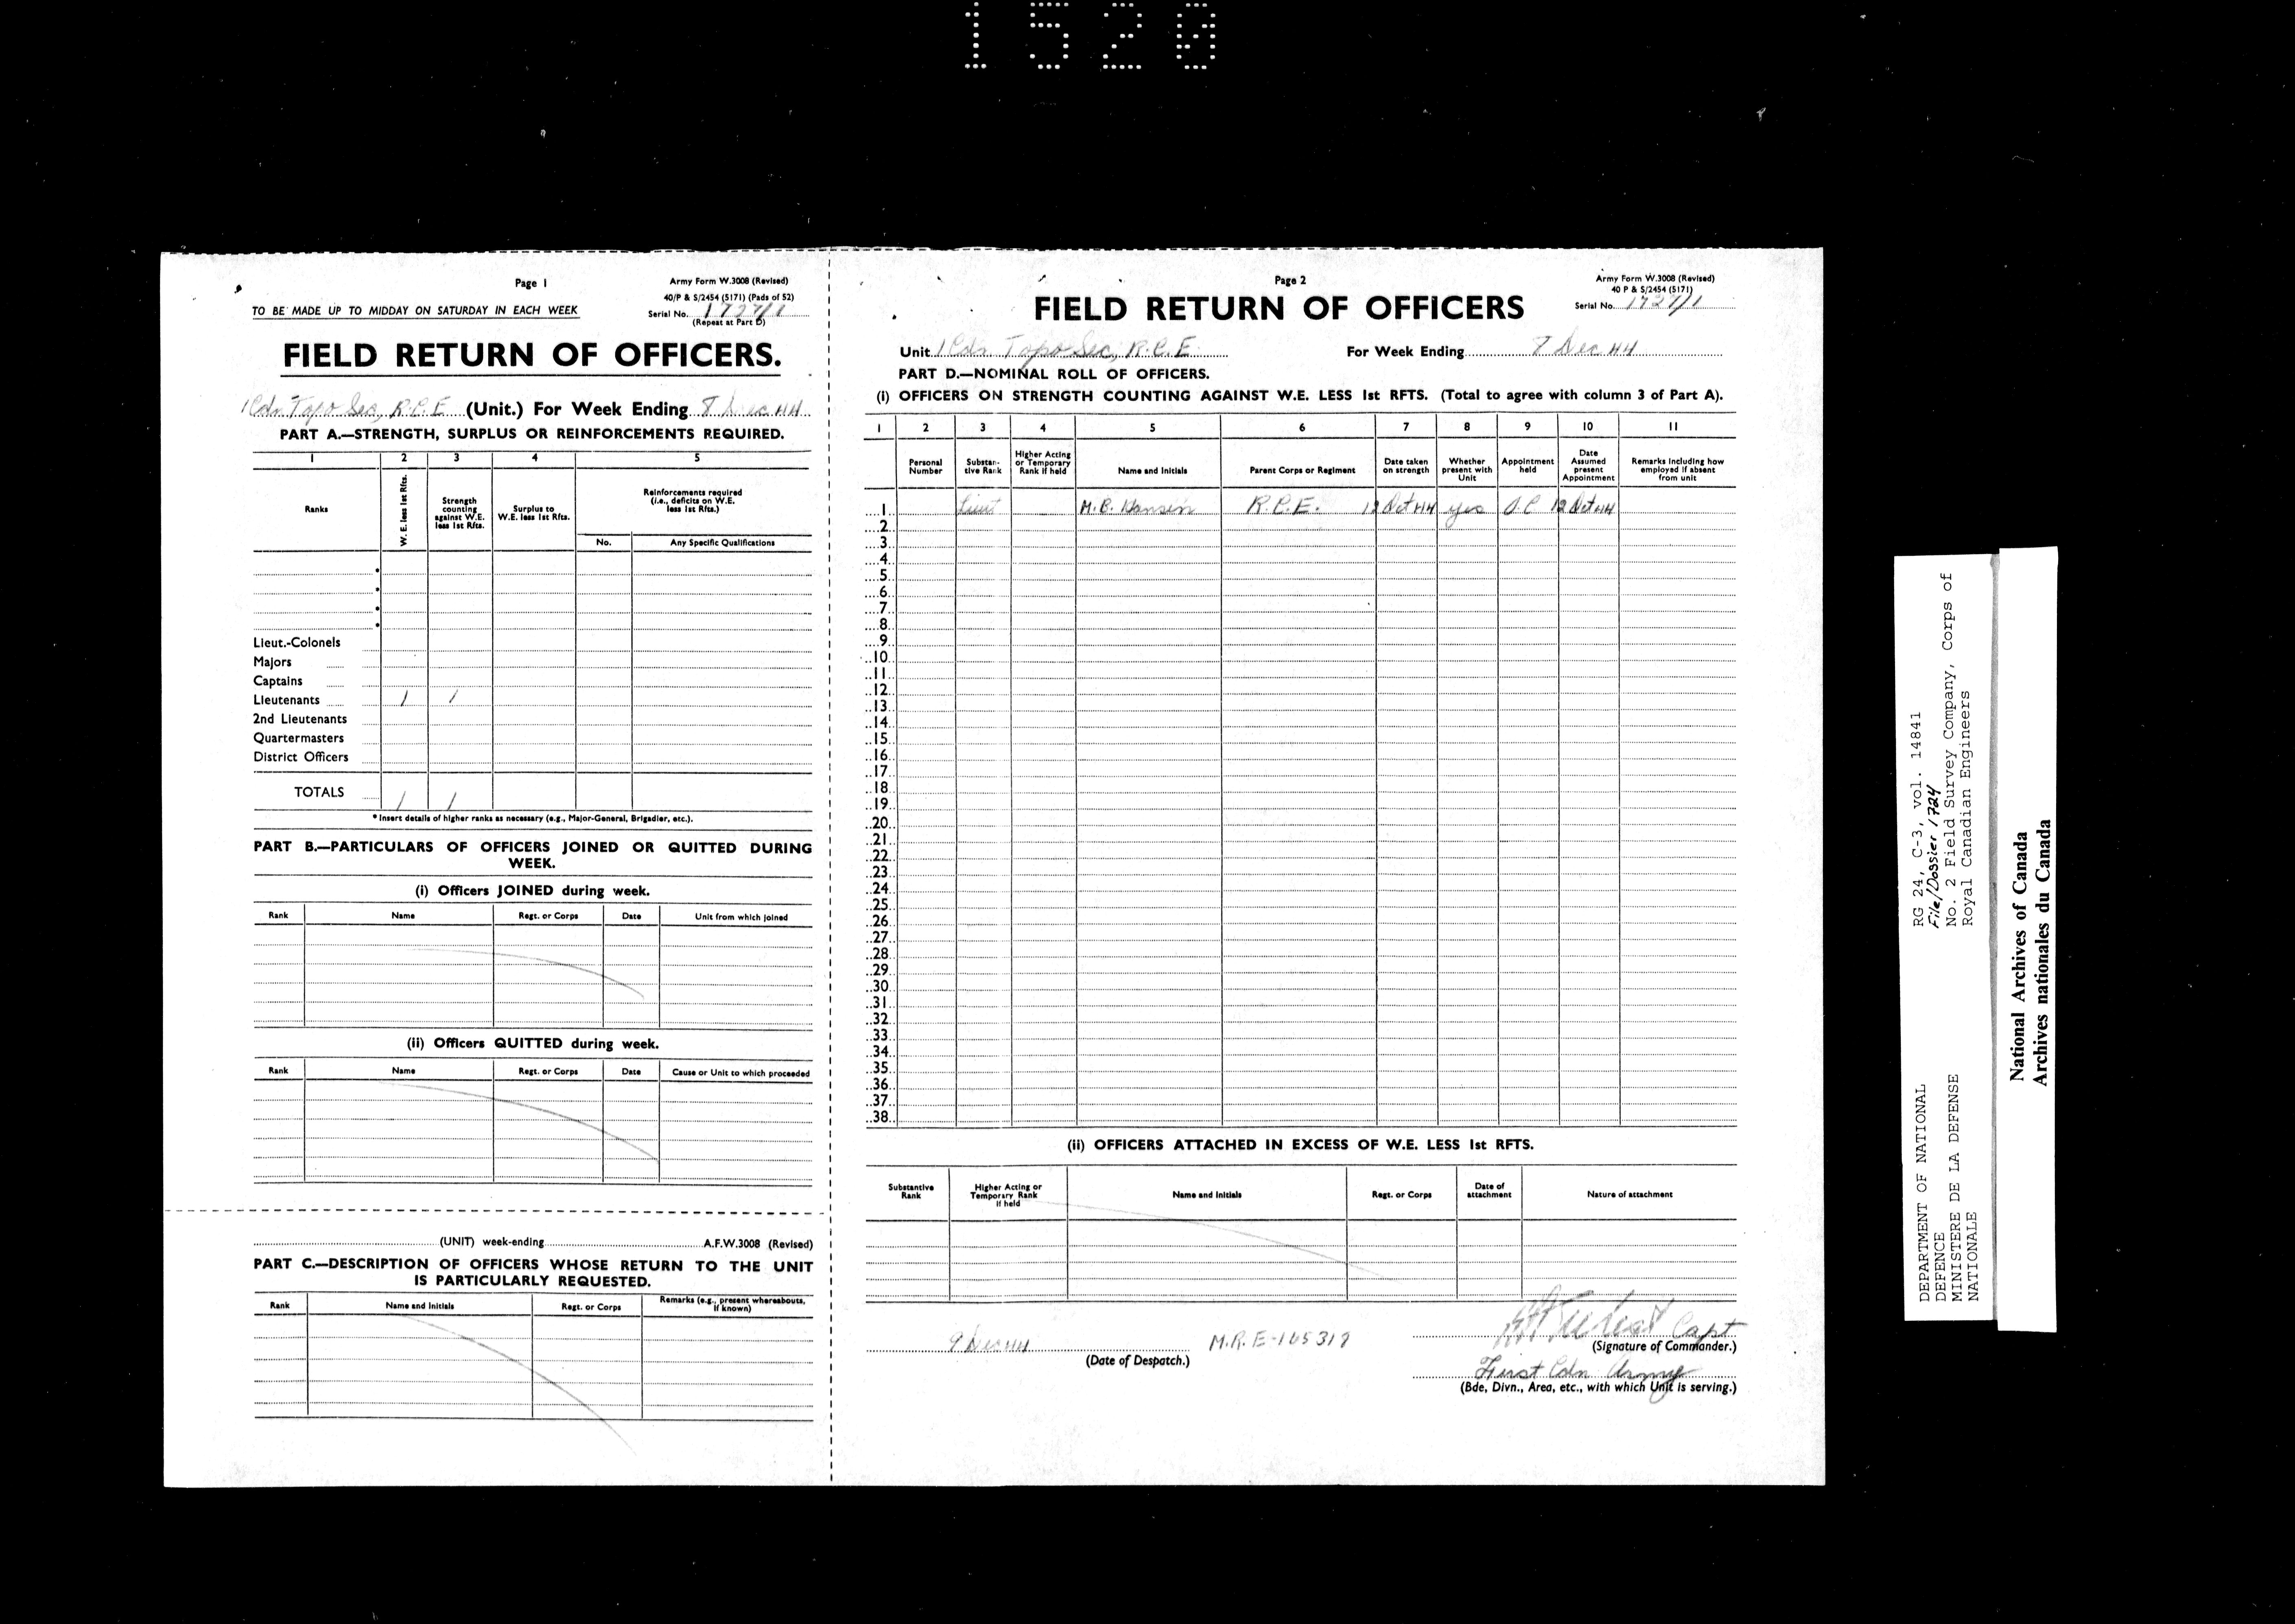 1520
Page 1
Army Form W.3008 (Revised)
40/P & S/2454 (5171) (Pads of 52)
TO BE MADE UP TO MIDDAY ON SATURDAY IN EACH WEEK
Serial No. 1727/1
(Repeat at Part D)
FIELD RETURN OF OFFICERS.
1 Cdn Topo Sec, R.C.E (Unit.) For Week Ending 8 Dec 44
PART A.—STRENGTH, SURPLUS OR REINFORCEMENTS REQUIRED.
1 2 3 4 5
Ranks
W. E. less 1st Rfts.
Strength counting against W.E. less 1st Rfts.
Surplus to W.E. less 1st Rfts.
Reinforcements required (i.e., deficits on W.E. less 1st Rfts.)
No. Any Specific Qualifications
Lieut.-Colonels
Majors
Captains
Lieutenants 1 1
2nd Lieutenants
Quartermasters
District Officers
TOTALS 1 1
* Insert details of higher ranks as necessary (e.g., Major-General, Brigadier, etc.).
PART B.—PARTICULARS OF OFFICERS JOINED OR QUITTED DURING
WEEK.
(i) Officers JOINED during week.
Rank Name Regt. or Corps Date Unit from which joined
(ii) Officers QUITTED during week.
Rank Name Regt. or Corps Date Cause or Unit to which proceeded
(UNIT) week-ending A.F.W.3008 (Revised)
PART C.—DESCRIPTION OF OFFICERS WHOSE RETURN TO THE UNIT
IS PARTICULARLY REQUESTED.
Rank Name and Initials Regt. or Corps Remarks (e.g., present whereabouts, if known)
Page 2
Army Form W.3008 (Revised)
40 P & S/2454 (5171)
Serial No. 1727/1
FIELD RETURN OF OFFICERS
Unit 1 Cdn Topo Sec, R.C.E. For Week Ending 8 Dec 44
PART D.—NOMINAL ROLL OF OFFICERS.
(i) OFFICERS ON STRENGTH COUNTING AGAINST W.E. LESS 1st RFTS. (Total to agree with column 3 of Part A).
1 2 3 4 5 6 7 8 9 10 11
Personal Number
Substantive Rank
Higher Acting or Temporary Rank if held
Name and Initials
Parent Corps or Regiment
Date taken on strength
Whether present with Unit
Appointment held
Date Assumed present Appointment
Remarks including how employed if absent from unit
1 Lieut M.B. Hansen R.C.E. 12 Oct 44 yes O.C 12 Oct 44
2
3
4
5
6
7
8
9
10
11
12
13
14
15
16
17
18
19
20
21
22
23
24
25
26
27
28
29
30
31
32
33
34
35
36
37
38
(ii) OFFICERS ATTACHED IN EXCESS OF W.E. LESS 1st RFTS.
Substantive Rank
Higher Acting or Temporary Rank if held
Name and Initials
Regt. or Corps
Date of attachment
Nature of attachment
9 Dec 44 M.R.E-165319 Capt
(Date of Despatch.) (Signature of Commander.)
First Cdn Army
(Bde, Divn., Area, etc., with which Unit is serving.)
DEPARTMENT OF NATIONAL
DEFENCE
MINISTERE DE LA DEFENSE
NATIONALE
RG 24, C-3, vol. 14841
File/Dossier 1724
No. 2 Field Survey Company, Corps of
Royal Canadian Engineers
National Archives of Canada
Archives nationales du Canada